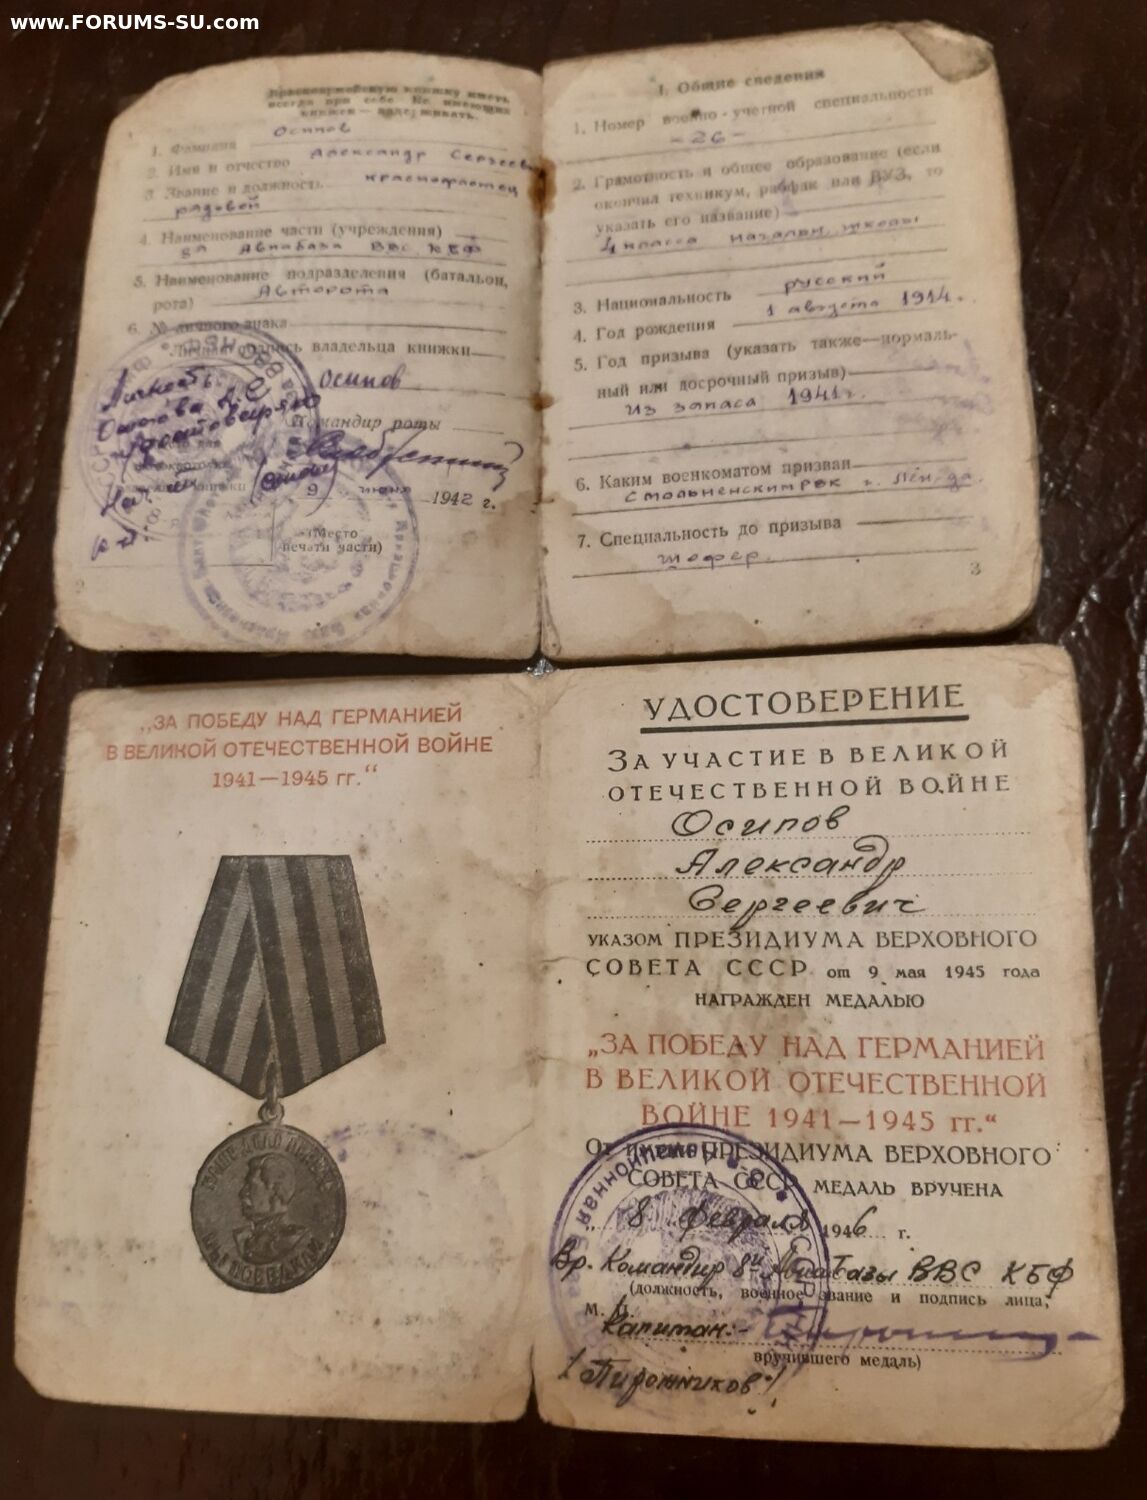 www.FORUMS-SU.com
Красноармейскую книжку иметь
всегда при себе. Не имеющих
книжек — задерживать.
1. Фамилия Осипов
2. Имя и отчество Александр Сергеевич
3. Звание и должность краснофлотец
рядовой
4. Наименование части (учреждения)
8я Авиабаза ВВС КБФ
5. Наименование подразделения (батальон,
рота) Авторота
6. № личного знака
Личная подпись владельца книжки
Осипов
Личность
Осипова А.С.
удостоверяю
Командир роты
9 июня 1942 г.
(Место
печати части)
2
I. Общие сведения
1. Номер военно-учетной специальности
-26-
2. Грамотность и общее образование (если
окончил техникум, рабфак или ВУЗ, то
указать его название)
4 класса начальн. школы
3. Национальность русский
4. Год рождения 1 августа 1914.
5. Год призыва (указать также—нормаль-
ный или досрочный призыв)
Из запаса 1941 г.
6. Каким военкоматом призван
Смольненским РВК г. Лен-да.
7. Специальность до призыва
шофер.
3
„ЗА ПОБЕДУ НАД ГЕРМАНИЕЙ
В ВЕЛИКОЙ ОТЕЧЕСТВЕННОЙ ВОЙНЕ
1941—1945 гг.“
УДОСТОВЕРЕНИЕ
ЗА УЧАСТИЕ В ВЕЛИКОЙ
ОТЕЧЕСТВЕННОЙ ВОЙНЕ
Осипов
Александр
Сергеевич
УКАЗОМ ПРЕЗИДИУМА ВЕРХОВНОГО
СОВЕТА СССР от 9 мая 1945 года
НАГРАЖДЕН МЕДАЛЬЮ
„ЗА ПОБЕДУ НАД ГЕРМАНИЕЙ
В ВЕЛИКОЙ ОТЕЧЕСТВЕННОЙ
ВОЙНЕ 1941—1945 гг.“
От имени ПРЕЗИДИУМА ВЕРХОВНОГО
СОВЕТА СССР МЕДАЛЬ ВРУЧЕНА
8 февраля 1946 г.
Вр. Командир 8й АвиаБазы ВВС КБФ
(должность, военное звание и подпись лица,
М. П.
Капитан:-
вручившего медаль)
/Пирожников/